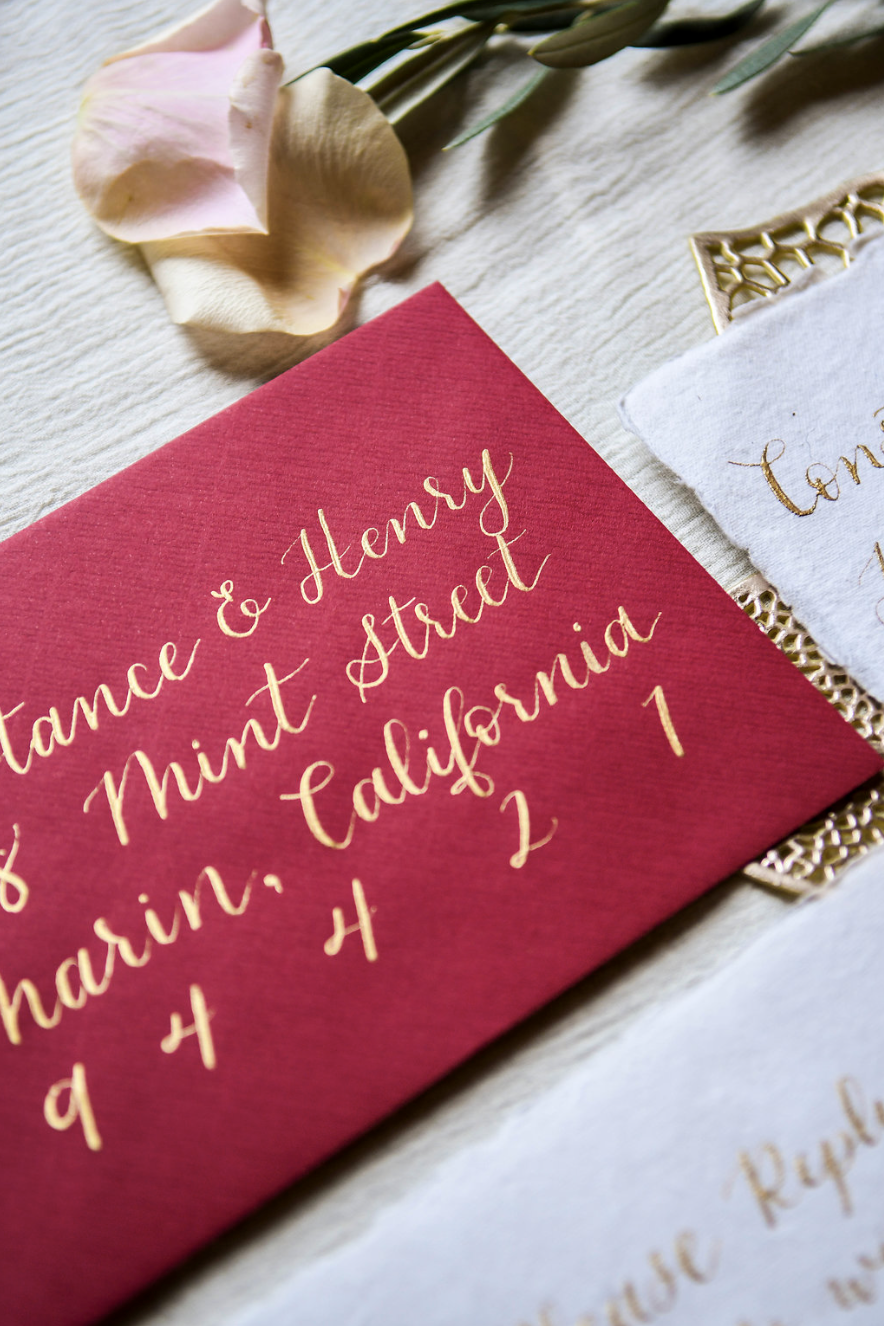 tance & Henry
8 Mint Street
harin, California
9 4 4 2 1
Con
Reply